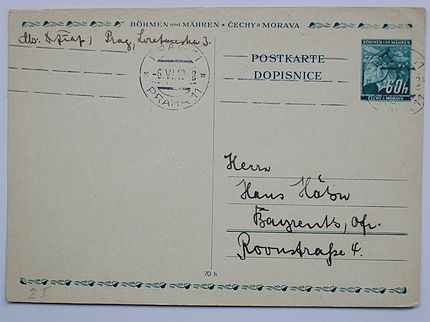 BÖHMEN und MÄHREN * ČECHY a MORAVA
Prag, Loretanska 3.
POSTKARTE
DOPISNICE
BÖHMEN UND MÄHREN
60h
ČECHY A MORAVA
PRAHA 11
-6.VI
Herrn
Hans
Bayreuth,
Roonstraße 4.
70 h